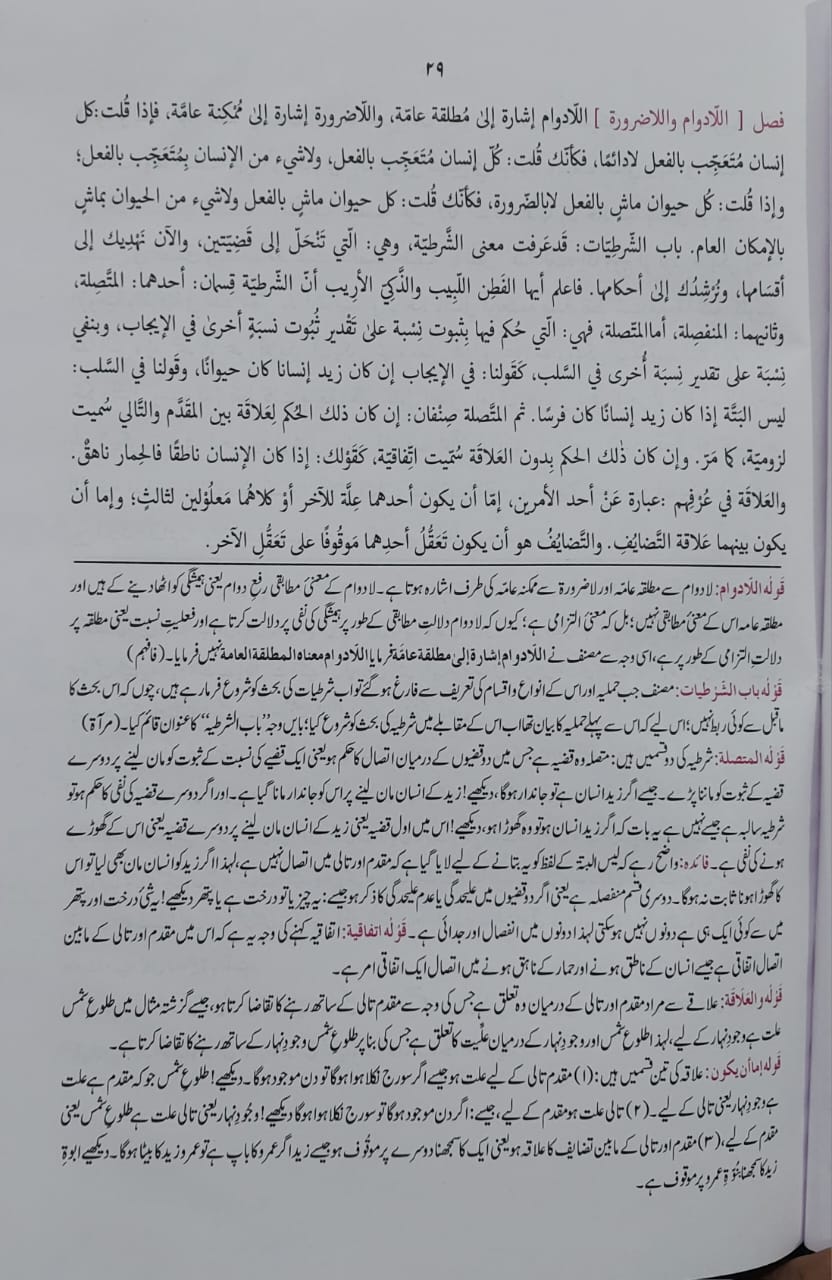 ٢٩
فصل [ اللّادوام واللاضرورة ] اللّادوام إشارة إلىٰ مُطلقة عامّة، واللّاضرورة إشارة إلىٰ مُمْكِنة عامَّة، فإذا قُلت:كل
إنسان مُتَعَجِّب بالفعل لادائمًا، فكأنّك قُلت: كُلّ إنسان مُتَعَجِّب بالفعل، ولاشيء من الإنسان بِمُتَعَجِّب بالفعل؛
وإذا قُلت: كُل حيوان ماشٍ بالفعل لابالضّرورة، فكأنّك قُلت: كل حيوان ماشٍ بالفعل ولاشيء من الحيوان بماشٍ
بالإمكان العام. باب الشّرطِيّات: قدعَرفت معنى الشَّرطيّة، وهي: الّتي تَنْحَلّ إلى قَضِيّتين، والآن نَهْدِيك إلى
أقسَامها، ونُرْشِدُك إلىٰ أحكامها. فاعلم أيها الفَطِن اللّبِيب والذَّكِيّ الأَرِيب أنّ الشّرطيّة قِسمان: أحدهما: المتَّصِلة،
وثانيهما: المنفصِلة، أماالمتّصلة، فهي: الّتي حُكم فيها بِثبوت نِسْبة علىٰ تَقْدير ثُبُوت نسبَةٍ أخرىٰ في الإيجاب، وبنفي
نِسْبَة على تقدير نِسبَة أُخرى في السَّلب، كَقَولنا: في الإيجاب إن كان زيد إنسانا كان حيوانًا، وقَولنا في السَّلب:
ليس البَتَّة إذا كان زيد إنسانًا كان فرسًا. ثم المتَّصلة صِنْفان: إن كان ذلك الحُكم لِعَلاقة بين المقَدَّم والتَّالي سُميت
لزوميّة، كما مَرّ. وإن كان ذٰلك الحكم بِدون العَلاقة سُمّيت اتِّفاقيّة، كَقَوْلك: إذا كان الإنسان ناطقًا فالحِمار ناهقٌ.
والعَلاقة في عُرْفِهم :عبارة عَنْ أحد الأمرين، إمّا أن يكون أحدهما عِلَّة للآخر أوْ كلاهُما مَعلُوْلين لثالثٍ؛ وإما أن
يكون بينهما عَلاقة التَّضايُفِ. والتَّضايُفُ هو أن يكون تَعَقُّلُ أحدِهما مَوقُوفًا على تَعَقُّلِ الآخر.
قولہ اللّادوام: لا دوام سے مطلقہ عامّہ اور لا ضرورۃ سے ممکنہ عامّہ کی طرف اشارہ ہوتا ہے۔ لا دوام کے معنیٔ مطابقی رفعِ دوام یعنی ہمیشگی کو اٹھا دینے کے ہیں اور
مطلقہ عامہ اس کے معنیٔ مطابقی نہیں؛ بل کہ معنیٔ التزامی ہے؛ کیوں کہ لا دوام دلالتِ مطابقی کے طور پر ہمیشگی کی نفی پر دلالت کرتا ہے اور فعلیتِ نسبت یعنی مطلقہ پر
دلالتِ التزامی کے طور پر ہے، اسی وجہ سے مصنف نے اللّادوام إشارة إلیٰ مطلقة عامّة فرمایا اللّادوام معناہ المطلقة العامة نہیں فرمایا۔ (فافہم)
قولہ باب الشّرطیات: مصنف جب حملیہ اور اس کے انواع و اقسام کی تعریف سے فارغ ہو گئے تو اب شرطیات کی بحث کو شروع فرما رہے ہیں، چوں کہ اس بحث کا
ماقبل سے کوئی ربط نہیں؛ اس لیے کہ اس سے پہلے حملیہ کا بیان تھا اب اس کے مقابلے میں شرطیہ کی بحث کو شروع کیا؛ بایں وجہ ”باب الشرطیہ“ کا عنوان قائم کیا۔ (مرآۃ)
قولہ المتصلة: شرطیہ کی دو قسمیں ہیں: متصلہ وہ قضیہ ہے جس میں دو قضیوں کے درمیان اتصال کا حکم ہو یعنی ایک قضیے کی نسبت کے ثبوت کو مان لینے پر دوسرے
قضیہ کے ثبوت کو ماننا پڑے۔ جیسے اگر زید انسان ہے تو جاندار ہوگا، دیکھیے! زید کے انسان مان لینے پر اس کو جاندار مانا گیا ہے۔ اور اگر دوسرے قضیہ کی نفی کا حکم ہو تو
شرطیہ سالبہ ہے جیسے نہیں ہے یہ بات کہ اگر زید انسان ہو تو وہ گھوڑا ہو، دیکھیے! اس میں اول قضیہ یعنی زید کے انسان مان لینے پر دوسرے قضیہ یعنی اس کے گھوڑے
ہونے کی نفی ہے۔ فائدہ: واضح رہے کہ لیس البتۃ کے لفظ کو یہ بتانے کے لیے لایا گیا ہے کہ مقدم اور تالی میں اتصال نہیں ہے، لہذا اگر زید کو انسان مان بھی لیا تو اس
کا گھوڑا ہونا ثابت نہ ہوگا۔ دوسری قسم منفصلہ ہے یعنی اگر دو قضیوں میں علیحدگی یا عدم علیحدگی کا ذکر ہو جیسے: یہ چیز یا تو درخت ہے یا پتھر دیکھیے! یہ شئ درخت اور پتھر
میں سے کوئی ایک ہی ہے دونوں نہیں ہو سکتی لہذا دونوں میں انفصال اور جدائی ہے۔ قولہ اتفاقیة: اتفاقیہ کہنے کی وجہ یہ ہے کہ اس میں مقدم اور تالی کے مابین
اتصال اتفاقی ہے جیسے انسان کے ناطق ہونے اور حمار کے ناہق ہونے میں اتصال ایک اتفاقی امر ہے۔
قولہ والعَلاقة: علاقے سے مراد مقدم اور تالی کے درمیان وہ تعلق ہے جس کی وجہ سے مقدم تالی کے ساتھ رہنے کا تقاضا کرتا ہو، جیسے گزشتہ مثال میں طلوعِ شمس
علت ہے وجودِ نہار کے لیے، لہذا طلوعِ شمس اور وجودِ نہار کے درمیان علّیت کا تعلق ہے جس کی بنا پر طلوعِ شمس وجودِ نہار کے ساتھ رہنے کا تقاضا کرتا ہے۔
قولہ إما أن یکون: علاقہ کی تین قسمیں ہیں: (۱) مقدم تالی کے لیے علت ہو جیسے اگر سورج نکلا ہوا ہوگا تو دن موجود ہوگا۔ دیکھیے! طلوعِ شمس جو کہ مقدم ہے علت
ہے وجودِ نہار یعنی تالی کے لیے۔ (۲) تالی علت ہو مقدم کے لیے، جیسے: اگر دن موجود ہوگا تو سورج نکلا ہوا ہوگا دیکھیے! وجُودِ نہار یعنی تالی علت ہے طلوعِ شمس یعنی
مقدم کے لیے، (۳) مقدم اور تالی کے مابین تضایف کا علاقہ ہو یعنی ایک کا سمجھنا دوسرے پر موقُوف ہو جیسے زید اگر عمرو کا باپ ہے تو عمرو زید کا بیٹا ہوگا۔ دیکھیے ابوۃِ
زید کا سمجھنا بُنُوّۃِ عمرو پر موقوف ہے۔